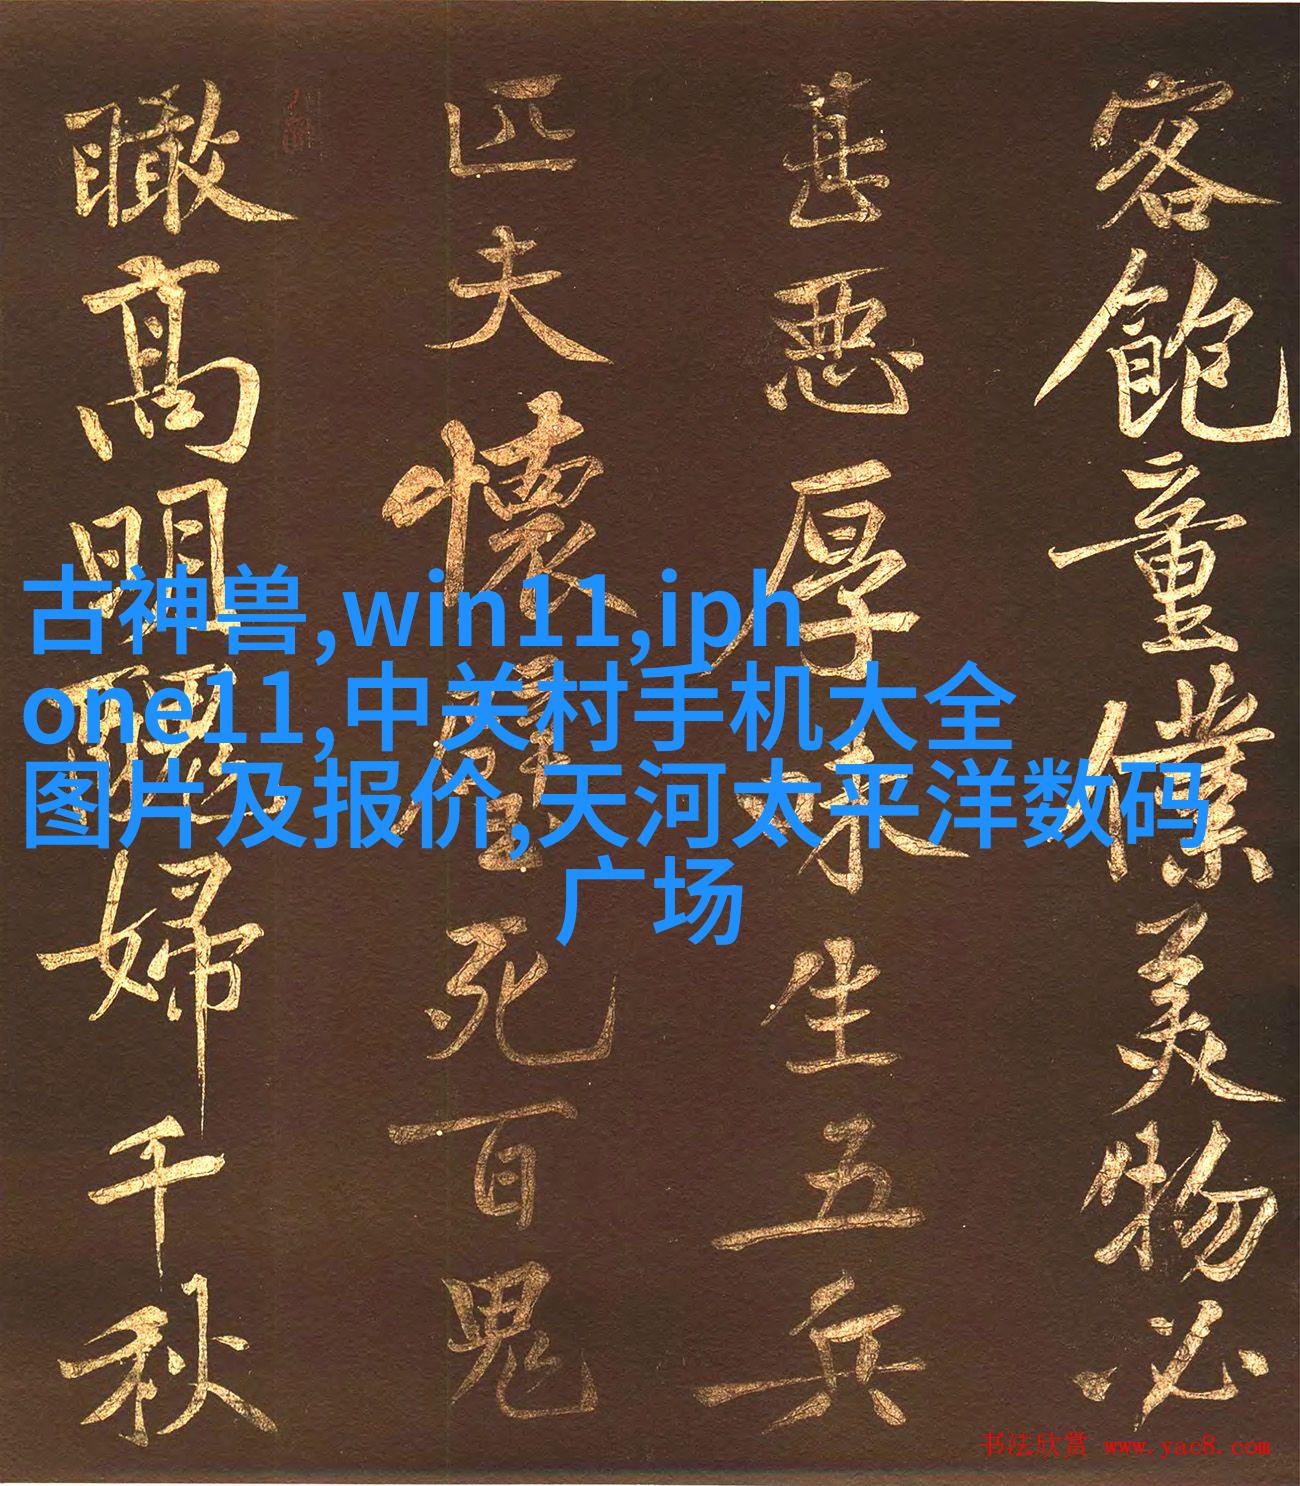 客飽童僕美物必
甚惡厚味生五兵
匹夫懷璧死百鬼
瞰高明醜婦千秋
古神兽,win11,iph
one11,中关村手机大全
图片及报价,天河太平洋数码
广场
书法欣赏 www.yac8.com